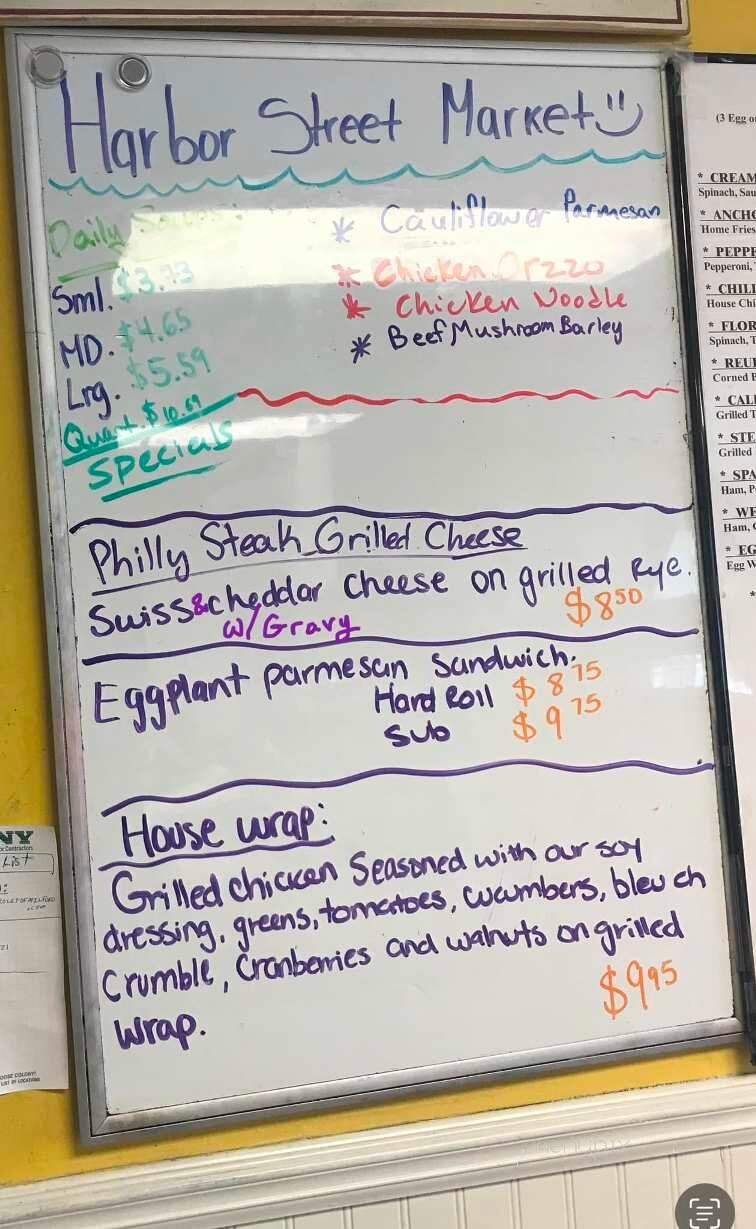 Harbor Street Market
Daily Soups:
* Cauliflower Parmesan
Sml. $3.73
* Chicken Orzzo
MD. $4.65
* Chicken Noodle
Lrg. $5.59
* Beef Mushroom Barley
Quart. $10.69
Specials
Philly Steak Grilled Cheese
Swiss & cheddar cheese on grilled Rye.
w/ Gravy $8.50
Eggplant parmesan sandwich.
Hard Roll $8.75
Sub $9.75
House wrap:
Grilled chicken Seasoned with our soy
dressing, greens, tomatoes, cucumbers, bleu ch
Crumble, Cranberries and walnuts on grilled
Wrap. $9.95
(3 Egg
* CREAM
Spinach,
* ANCHO
Home Fries
* PEPPE
Pepperoni,
* CHILI
House Chi
* FLOR
Spinach, T
* REU
Corned
* CAL
Grilled T
* STE
Grilled
* SPA
Ham,
* WE
Ham,
* EG
Egg W
*
NY
List